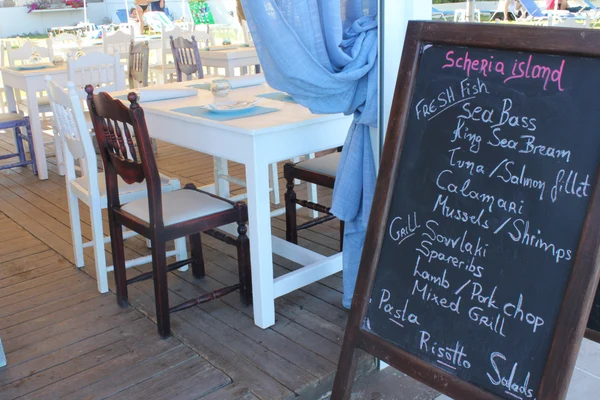 Scheria island
FRESH Fish
Sea Bass
King Sea Bream
Tuna/Salmon fillet
Calamari
Mussels/Shrimps
GRILL Souvlaki
Spareribs
Lamb/Pork chop
Mixed Grill
Pasta
Risotto
Salads